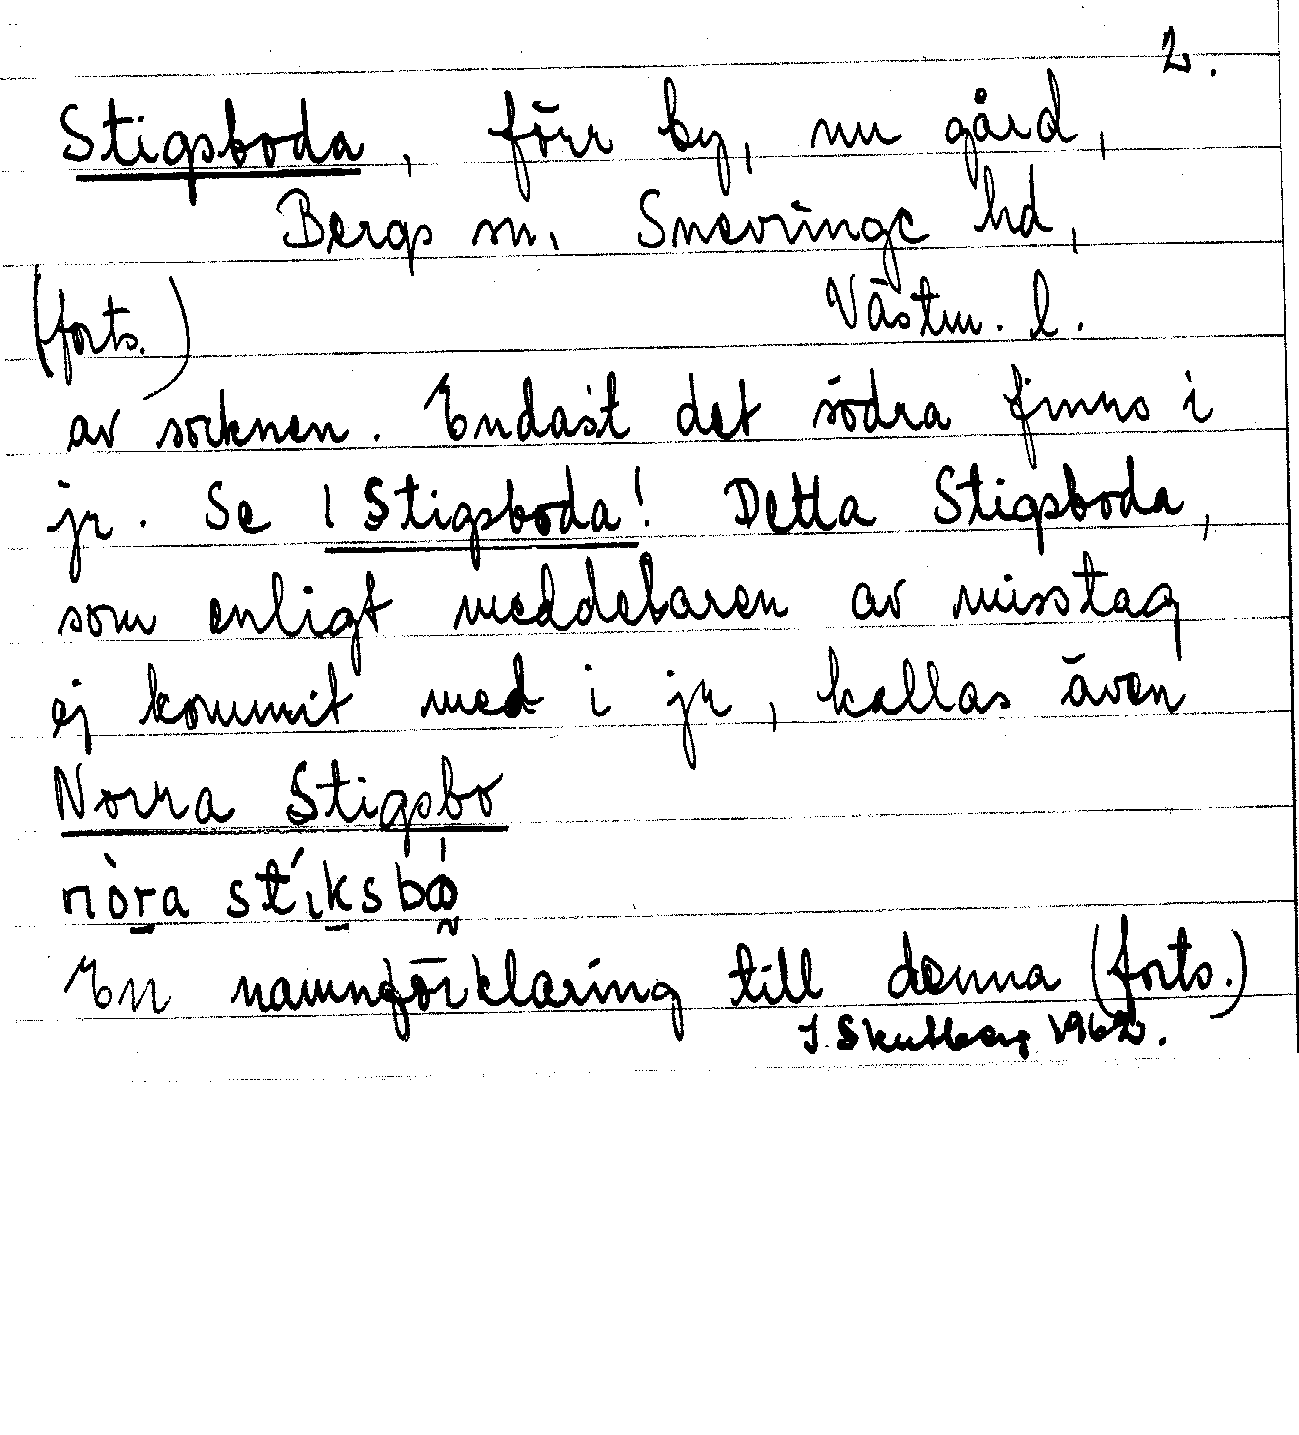 2.
Stigsboda, förr by, nu gård,
Bergs sn, Snevringe hd,
(forts.) Västm. l.
av socknen. Endast det södra finns i
jr. Se 1 Stigsboda! Detta Stigsboda,
som enligt meddelaren av misstag
ej kommit med i jr, kallas även
Norra Stigsbo
nòra stíksbó
En namnförklaring till denna (forts.)
J. Skutberg 1962.